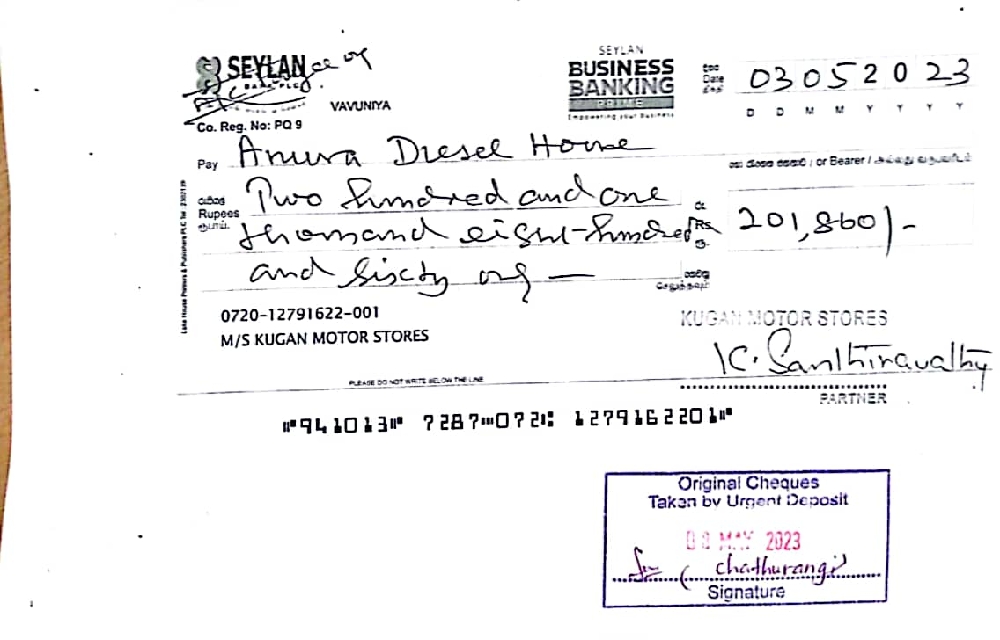 SEYLAN
BANK PLC
VAVUNIYA
Co. Reg. No: PQ 9
SEYLAN
BUSINESS
BANKING
PRIME
Empowering your business
දිනය
Date
திகதி
03052023
D D M M Y Y Y Y
Pay Anura Diesel House
or Bearer /
රුපියල්
Rupees
ரூபாய்
Two hundred and one
thousand eight hundred
and sixty only —
රු.
Rs.
ரூ.
201,860/-
0720-12791622-001
M/S KUGAN MOTOR STORES
KUGAN MOTOR STORES
K. Santhiravathy
PARTNER
PLEASE DO NOT WRITE BELOW THE LINE
⑈941013⑈ 7287⑉072⑆ 1279162201⑈
Original Cheques
Taken by Urgent Deposit
MAY 2023
chathurangi
Signature